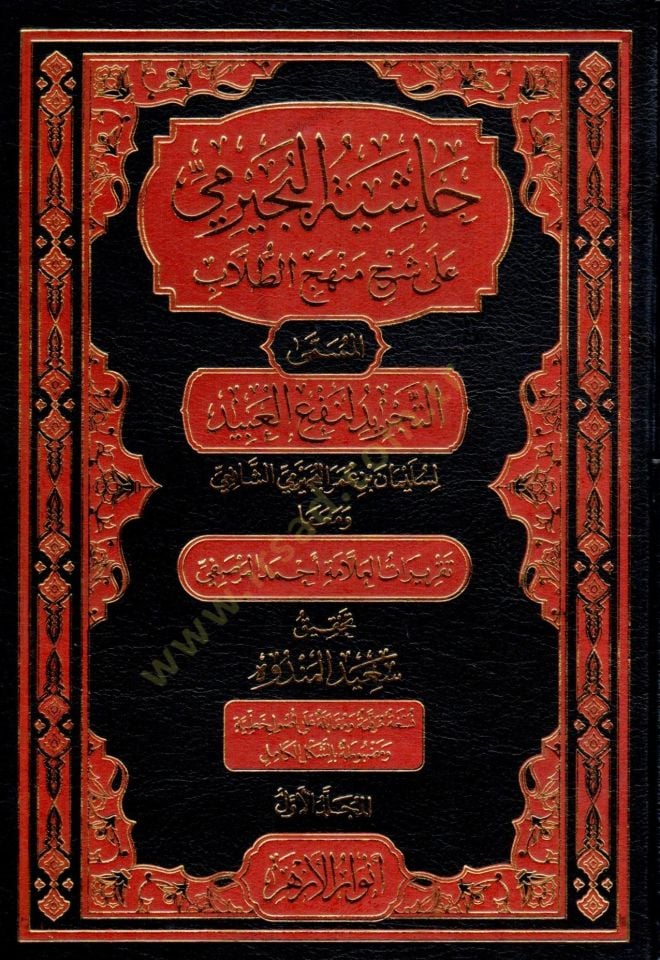 حَاشِيَةُ البُجَيْرِمِيِّ
عَلَى شَرْحِ مَنْهَجِ الطُّلَّابِ
المُسَمَّى
التَّجْرِيدُ لِنَفْعِ العَبِيدِ
لسُليْمَان بن عُمَر البُجَيرمي الشَّافِعِيّ
ومعها
تقريرات العلامة أحمد المرصفي
تحقيق
سَعِيد المَنْدُوْه
نسخة مقابلة على أصول خطية
ومضبوطة بالشكل الكامل
المجلد الأول
أنوار الأزهر
www.